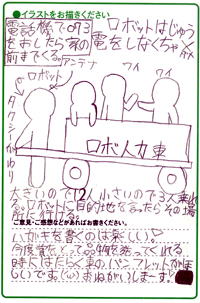 ●イラストをお描きください
電話機で073 ロボットはじゅう
をおしたら家の 電をしなくちゃダメ
前までくる。
アンテナ
ロボット
ワイ
ワイ
タクシーがわり
ロボ人力車
大きいので12人 小さいので3人乗れ
る。ロボットに目的地を言ったらその場
所に行ける。
ご意見・ご感想などがあればお書きください。
ハガキを書くのは楽しい。
今度食をって品物を送ってくれる
時にはたらくまのパンフレットがほ
しいです(ω)おねがいしまーす。